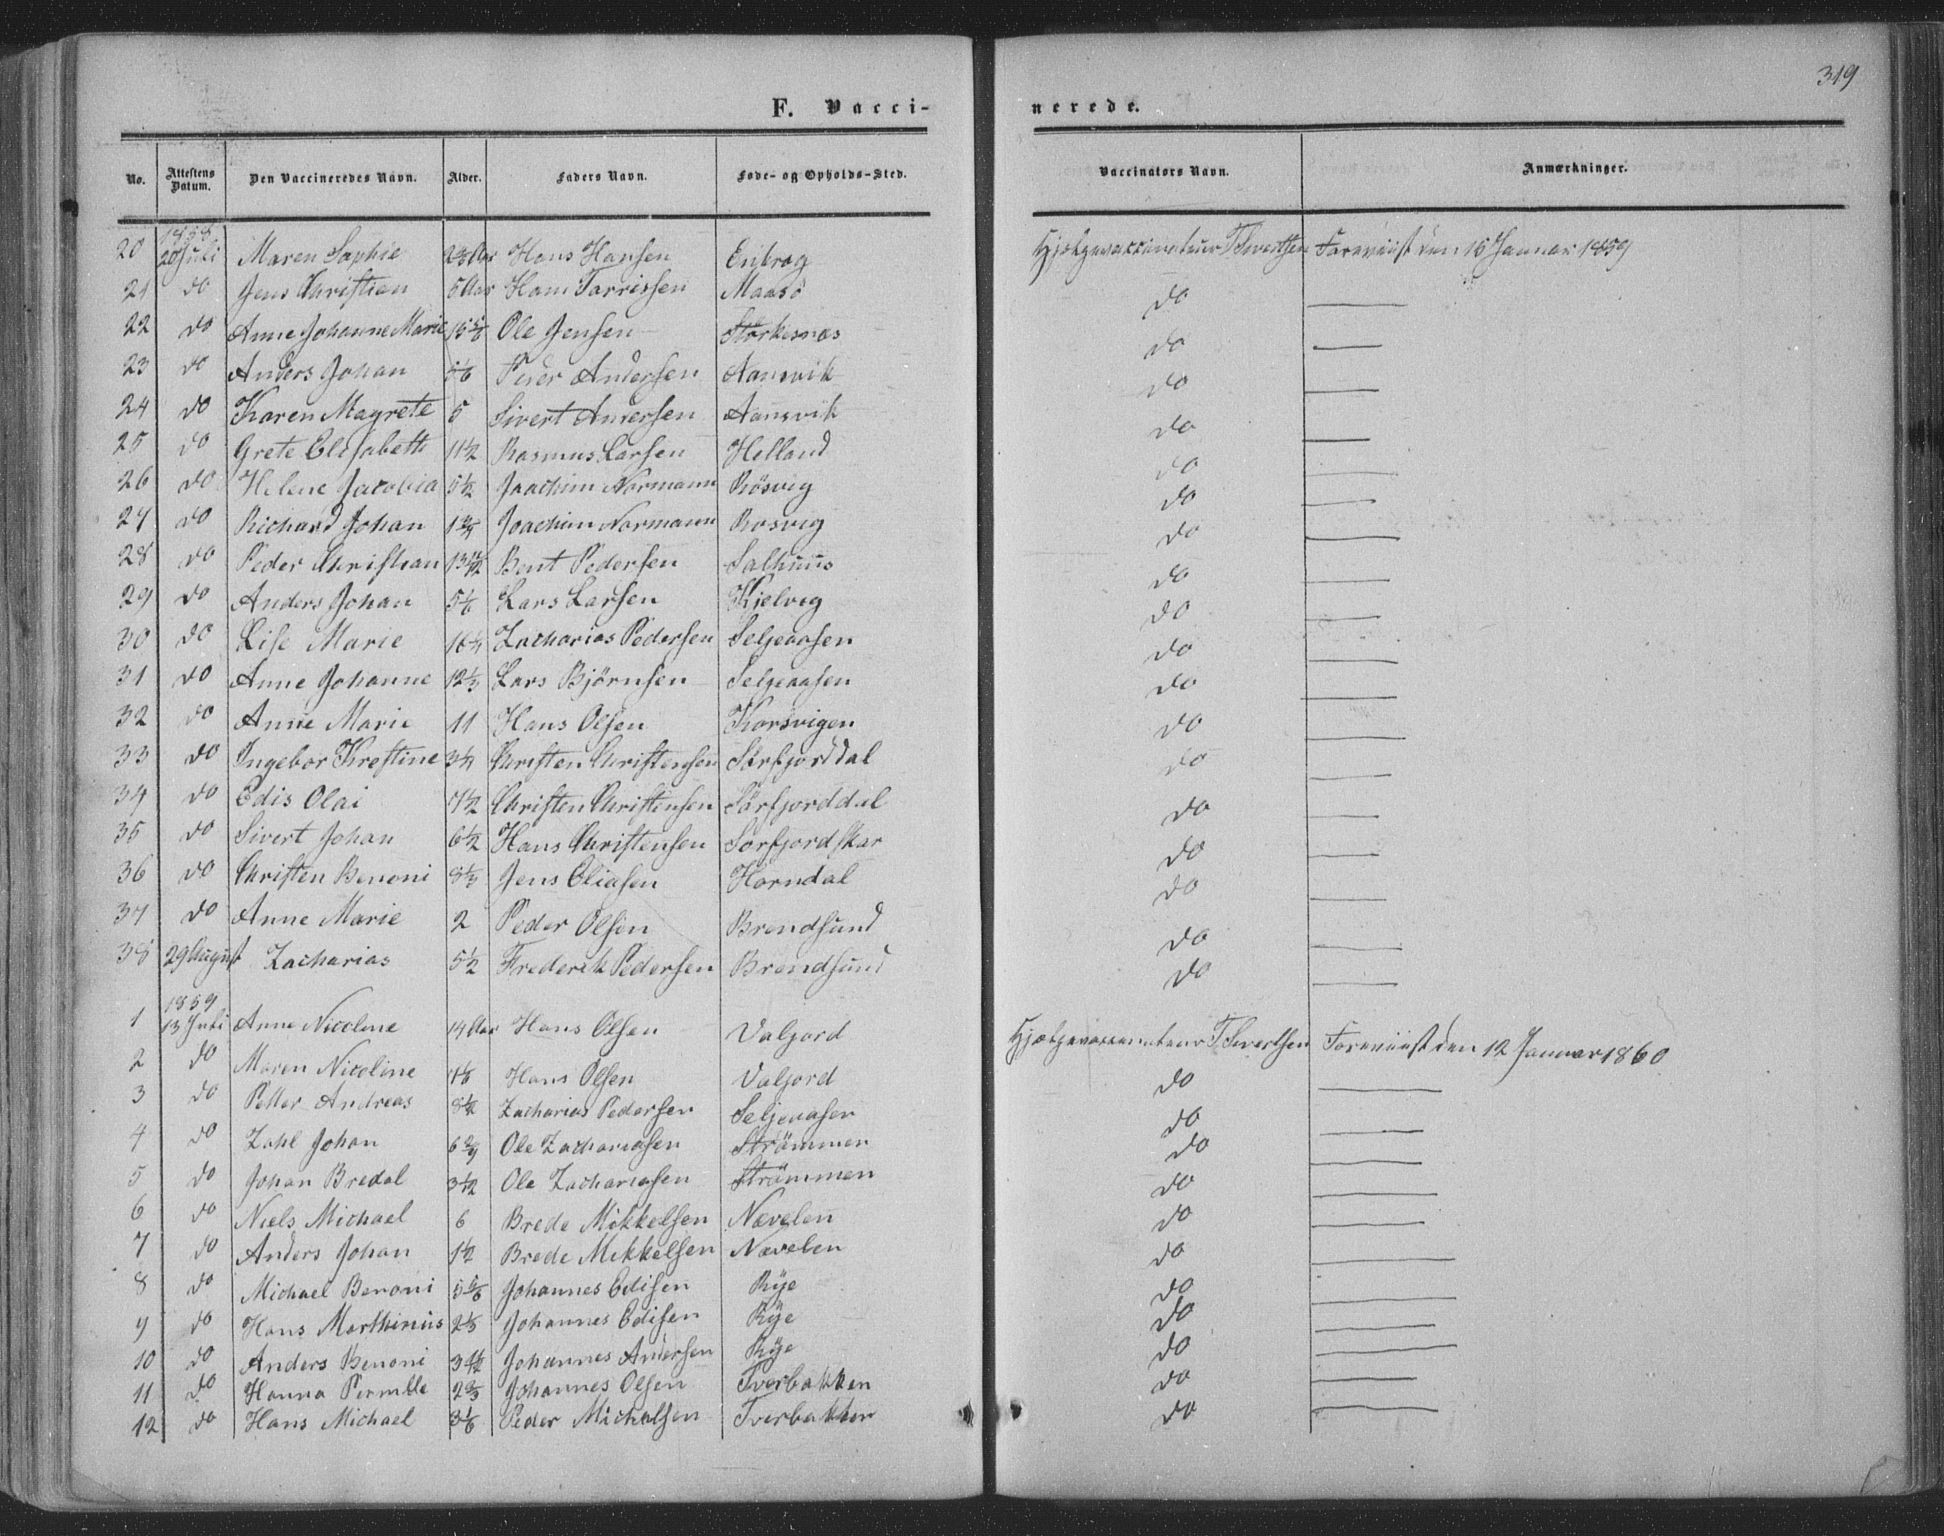 319
F. Vacci- nerede.
No. | Attestens Datum. | Den Vaccineredes Navn. | Alder. | Faders Navn. | Føde- og Opholds-Sted. | Vaccinatørs Navn. | Anmærkninger.
20 | 1858 20 Juli | Maren Sophie | Aar | Hans Hansen | | Hjælpevaccinateur T Sivertsen | Foreviist den 16 Januar 1859
21 | do | Jens Christian | 5 Aar | Hans | Maasö | do | —
22 | do | Anne Johanne Marie | | Ole Jensen | Størkesnæs | do | —
23 | do | Anders Johan | | Peder Andersen | Aansvik | do | —
24 | do | Karen Magrete | 5 | Sivert Andersen | Aansvik | do | —
25 | do | Grete Elisabeth | 11½ | Rasmus Larsen | Helland | do | —
26 | do | Helene Jacobia | 5½ | Joachim Normann | Rösvig | do | —
27 | do | Richard Johan | | Joachim Normann | Rosvig | do | —
28 | do | Peder Christian | | Bent Pedersen | Salhuus | do | —
29 | do | Anders Johan | | Lars Larsen | Kjelvig | do | —
30 | do | Lise Marie | | Zacharias Pedersen | Seljeaasen | do | —
31 | do | Anne Johanne | | Lars Björnsen | Seljeaasen | do | —
32 | do | Anne Marie | 11 | Hans Olsen | Korsvigen | do | —
33 | do | Ingebor Krestine | | Christen Christensen | Sørfjorddal | do | —
34 | do | Edis Olai | | Christen Christensen | Sörfjorddal | do | —
35 | do | Sivert Johan | 6½ | Hans Christensen | Sörfjordskar | do | —
36 | do | Christen Benoni | | Jens Eliasen | Horndal | do | —
37 | do | Anne Marie | 2 | Peder Olsen | Brendsund | do | —
38 | 29 August | Zacharias | 5½ | Frederik Pedersen | Brendsund | do | —
1 | 1859 13 Juli | Anne Nicoline | 14 Aar | Hans Olsen | Valjord | Hjælpevaccinateur T Sivertsen | Foreviist den 12 Januar 1860
2 | do | Maren Nicoline | | Hans Olsen | Valjord | do | —
3 | do | Petter Andreas | | Zacharias Pedersen | Seljeaasen | do | —
4 | do | Zahl Johan | | Ole Zachariasen | Strömmen | do | —
5 | do | Johan Bredal | | Ole Zachariasen | Strömmen | do | —
6 | do | Niels Michael | 6 | Brede Mikkelsen | Nævelen | do | —
7 | do | Anders Johan | 1½ | Brede Mikkelsen | Nævelen | do | —
8 | do | Michael Benoni | | Johannes Edisen | Rÿe | do | —
9 | do | Hans Marthinus | | Johannes Edisen | Rÿe | do | —
10 | do | Anders Benoni | | Johannes Andersen | Rÿe | do | —
11 | do | Hanna Pernille | 2⅔ | Johannes Olsen | Tverbakken | do | —
12 | do | Hans Michael | 3⅙ | Peder Michelsen | Tverbakken | do | —